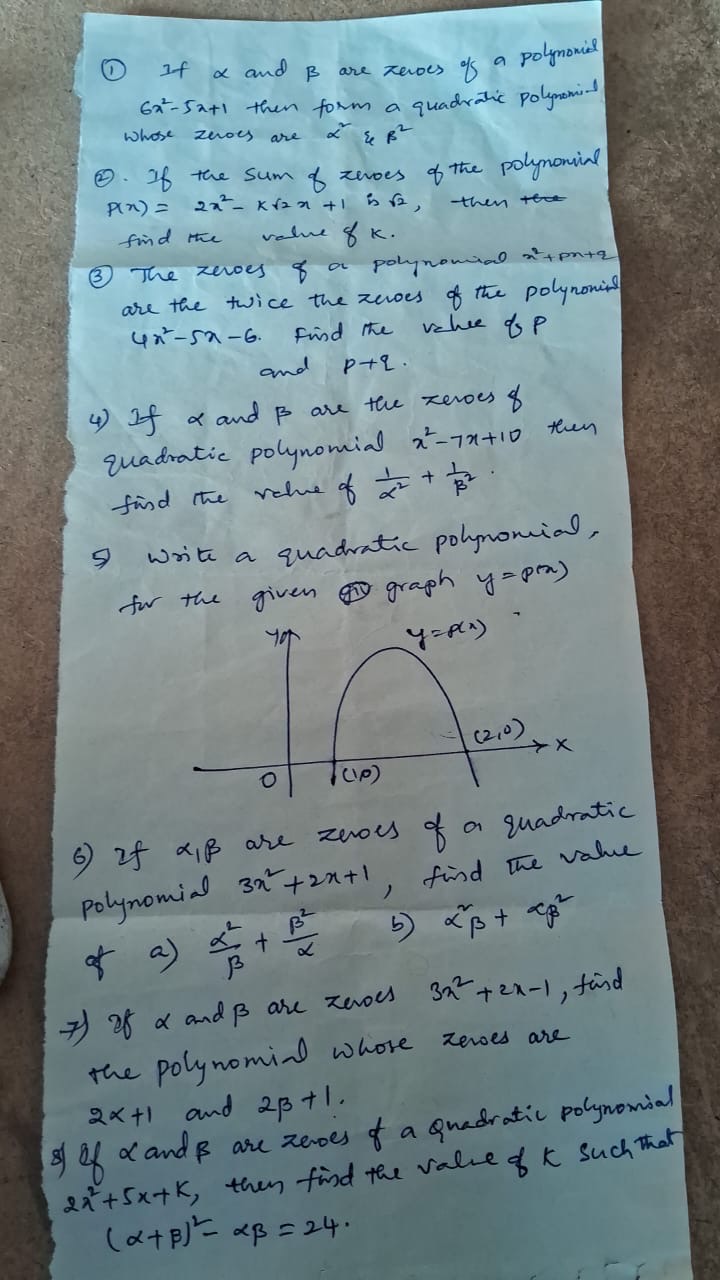 ① If α and β are zeroes of a polynomial
6x²-5x+1 then form a quadratic polynomial
whose zeroes are α² & β²
②. If the sum of zeroes of the polynomial
P(x) = 2x² - K√2 x +1 is √2, then
find the value of K.
③ The zeroes of a polynomial x²+px+q
are the twice the zeroes of the polynomial
4x²-5x-6. Find the value of P
and P+q.
4) If α and β are the zeroes of
quadratic polynomial x²-7x+10 then
find the value of 1/α² + 1/β².
5) Write a quadratic polynomial,
for the given graph y=p(x)
y
y=p(x)
(2,0)
X
O
(1,0)
6) If α,β are zeroes of a quadratic
polynomial 3x²+2x+1, find the value
of a) α²/β + β²/α b) α²β + αβ²
7) If α and β are zeroes 3x²+2x-1, find
the polynomial whose zeroes are
2α+1 and 2β+1.
8) If α and β are zeroes of a quadratic polynomial
2x²+5x+K, then find the value of K such that
(α+β)² - αβ = 24.